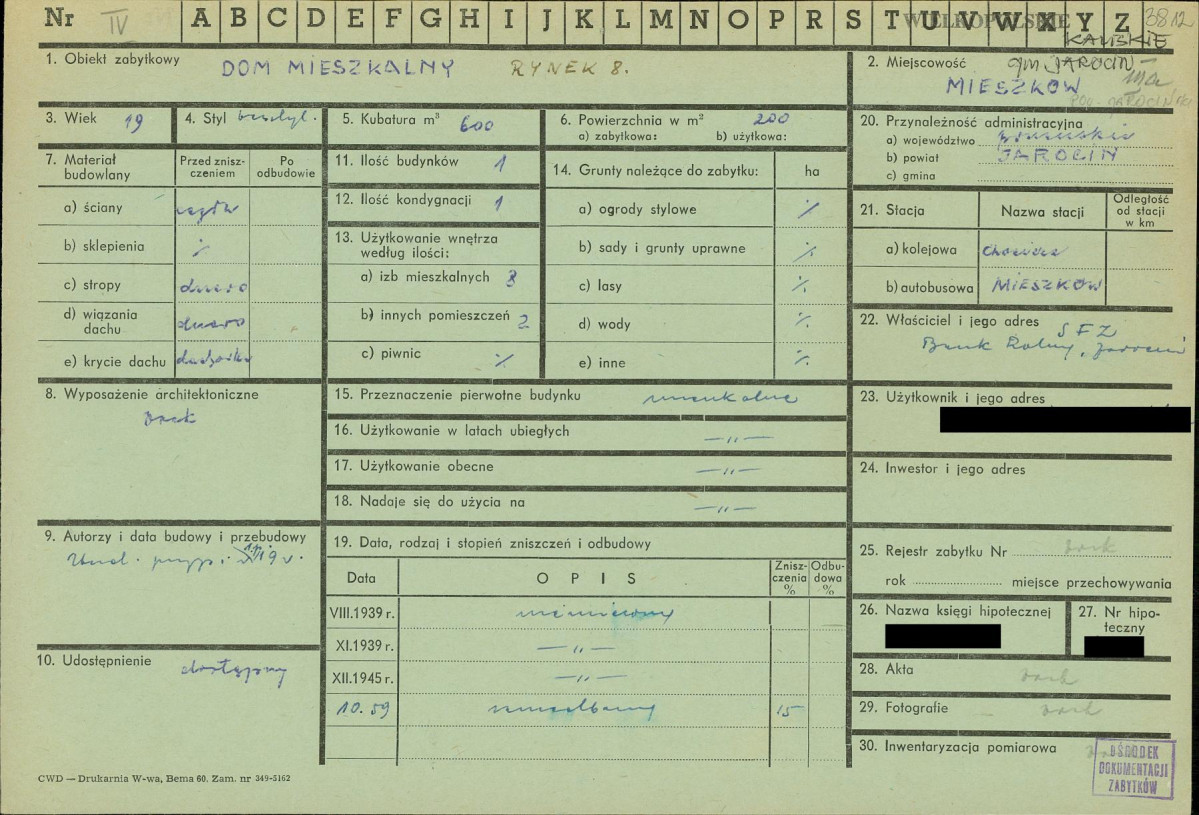 Nr IV A B C D E F G H I J K L M N O P R S T U V W X Y Z 3812
WIELKOPOLSKIE
KALISKIE
1. Obiekt zabytkowy DOM MIESZKALNY RYNEK 8.
2. Miejscowość gm. JAROCIN
MIESZKÓW
POW. JAROCIŃSKI
3. Wiek 19
4. Styl bezstyl.
5. Kubatura m³ 600
6. Powierzchnia w m² 200
a) zabytkowa: b) użytkowa:
20. Przynależność administracyjna
a) województwo
b) powiat JAROCIN
c) gmina
7. Materiał budowlany
Przed zniszczeniem
Po odbudowie
a) ściany
b) sklepienia %
c) stropy drewno
d) wiązania dachu drewno
e) krycie dachu dachówka
11. Ilość budynków 1
12. Ilość kondygnacji 1
13. Użytkowanie wnętrza według ilości:
a) izb mieszkalnych 3
b) innych pomieszczeń 2
c) piwnic %
14. Grunty należące do zabytku: ha
a) ogrody stylowe %
b) sady i grunty uprawne %
c) lasy %
d) wody %
e) inne %
21. Stacja Nazwa stacji Odległość od stacji w km
a) kolejowa
b) autobusowa MIESZKÓW
22. Właściciel i jego adres SFZ
Bank Rolny, Jarocin
8. Wyposażenie architektoniczne
brak
15. Przeznaczenie pierwotne budynku mieszkalne
16. Użytkowanie w latach ubiegłych —„—
17. Użytkowanie obecne —„—
18. Nadaje się do użycia na —„—
23. Użytkownik i jego adres
24. Inwestor i jego adres
9. Autorzy i data budowy i przebudowy
19. Data, rodzaj i stopień zniszczeń i odbudowy
Data OPIS Zniszczenia % Odbudowa %
VIII.1939 r. niezniszczony
XI.1939 r. —„—
XII.1945 r. —„—
10.59 zaniedbany 15
10. Udostępnienie dostępny
25. Rejestr zabytku Nr brak
rok miejsce przechowywania
26. Nazwa księgi hipotecznej
27. Nr hipoteczny
28. Akta brak
29. Fotografie brak
30. Inwentaryzacja pomiarowa
OŚRODEK
DOKUMENTACJI
ZABYTKÓW
CWD — Drukarnia W-wa, Bema 60. Zam. nr 349-5162